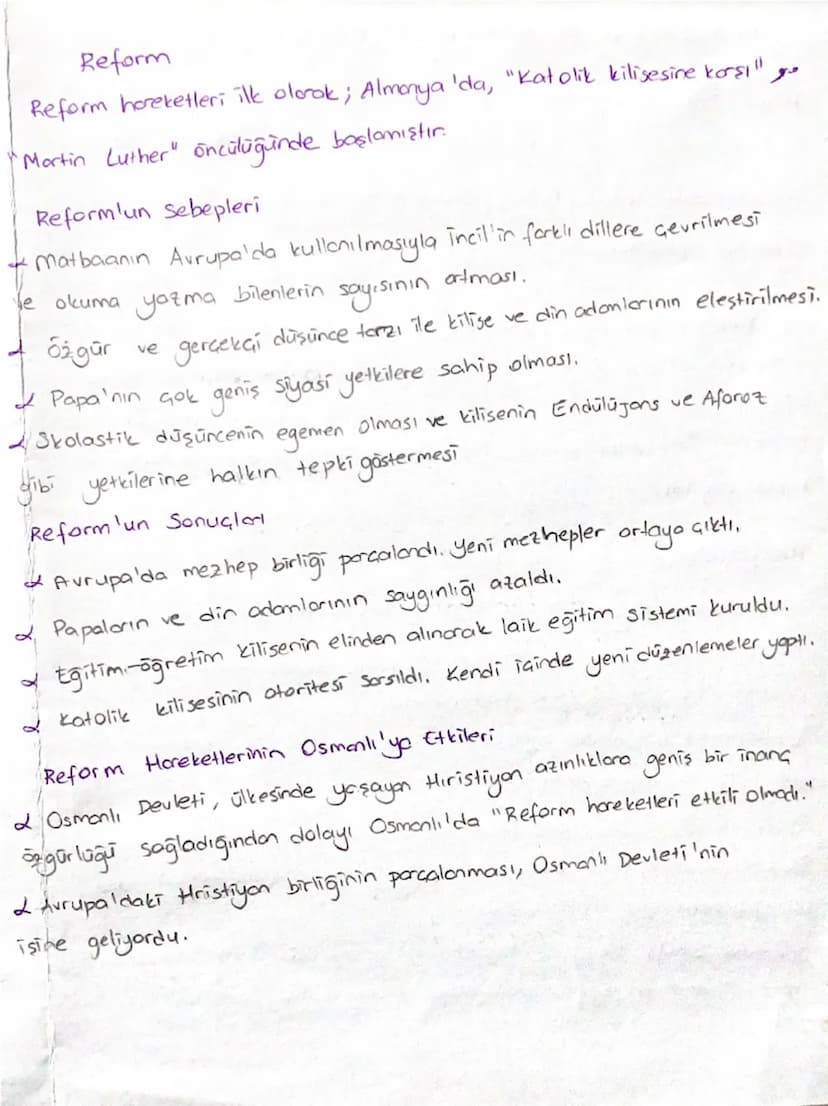 Reform
Reform hareketleri ilk olarak; Almanya'da, "Katolik kilisesine karşı"
"Martin Luther" öncülüğünde başlamıştır.
Reform'un Sebepleri
Matbaanın Avrupa'da kullanılmasıyla İncil'in farklı dillere çevrilmesi
ve okuma yazma bilenlerin sayısının artması.
Özgür ve gerçekçi düşünce tarzı ile kilise ve din adamlarının eleştirilmesi.
Papa'nın çok geniş siyasi yetkilere sahip olması.
Skolastik düşüncenin egemen olması ve kilisenin Endülüjans ve Aforoz
gibi yetkilerine halkın tepki göstermesi
Reform'un Sonuçları
Avrupa'da mezhep birliği parçalandı. Yeni mezhepler ortaya çıktı.
Papaların ve din adamlarının saygınlığı azaldı.
Eğitim-öğretim kilisenin elinden alınarak laik eğitim sistemi kuruldu.
Katolik kilisesinin otoritesi sarsıldı. Kendi içinde yeni düzenlemeler yaptı.
Reform Hareketlerinin Osmanlı'ya Etkileri
Osmanlı Devleti, ülkesinde yaşayan Hıristiyan azınlıklara geniş bir inanç
özgürlüğü sağladığından dolayı Osmanlı'da "Reform hareketleri etkili olmadı."
Avrupa'daki Hristiyan birliğinin parçalanması, Osmanlı Devleti'nin
işine geliyordu.